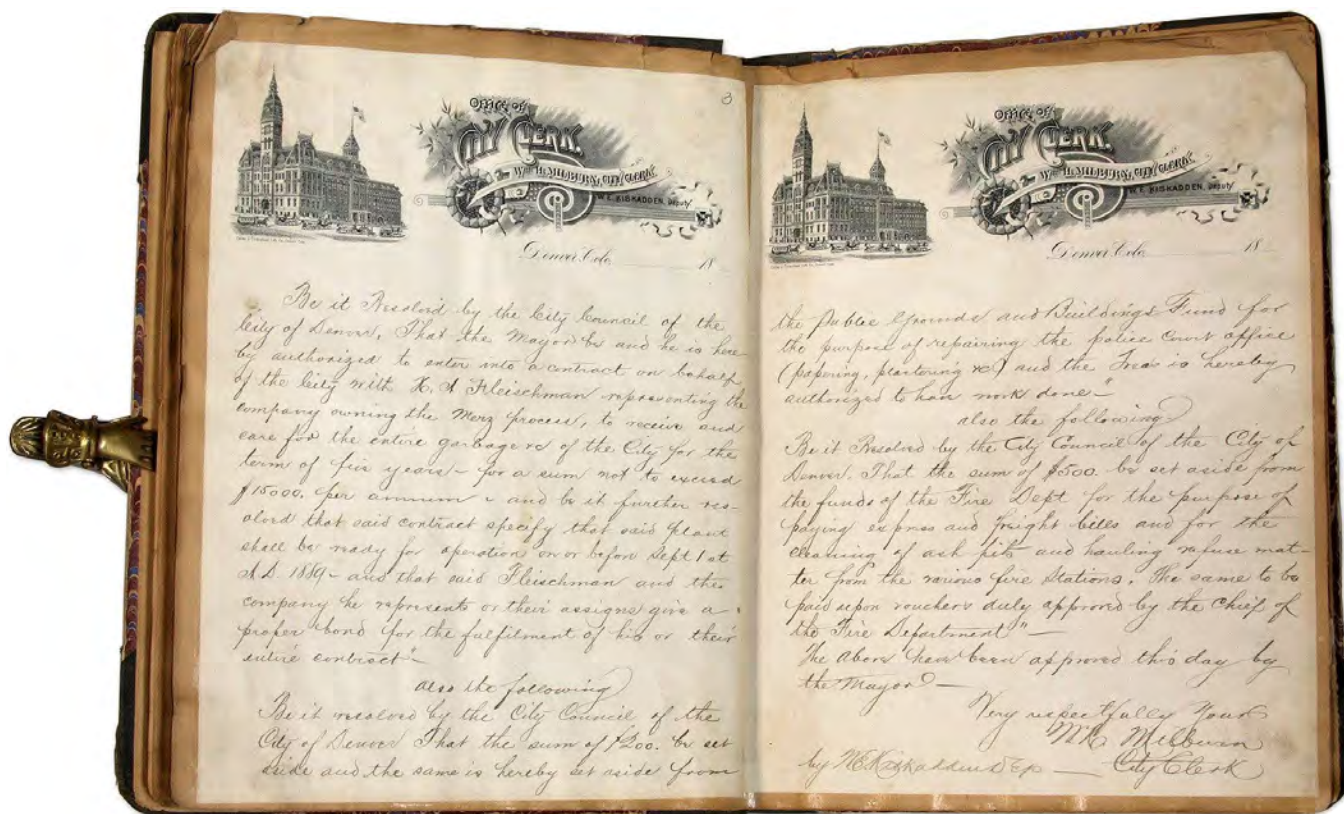 3
OFFICE OF
CITY CLERK.
WM H. MILBURN, CITY CLERK.
W. E. KISKADDEN, Deputy
Denver, Colo. 18
Be it Resolved by the City Council of the
City of Denver, That the Mayor be and he is here
by authorized to enter into a contract on behalf
of the City with H. A Fleischman representing the
company owning the Merz process, to receive and
care for the entire garbage &c of the City for the
term of five years – for a sum not to exceed
$15000. per annum – and be it further res-
olved that said contract specify that said plant
shall be ready for operation on or before Sept 1st
A.D. 1889 – and that said Fleischman and the
company he represents or their assigns give a
proper bond for the fulfilment of his or their
entire contract" –
also the following
Be it resolved by the City Council of the
City of Denver That the sum of $200. be set
aside and the same is hereby set aside from
OFFICE OF
CITY CLERK.
WM H. MILBURN, CITY CLERK.
W. E. KISKADDEN, Deputy
Denver, Colo. 18
the Public Grounds and Buildings Fund for
the purpose of repairing the police Court office
(papering, plastering &c) and the is hereby
authorized to have work done –"
also the following
Be it Resolved by the City Council of the City of
Denver. That the sum of $500. be set aside from
the funds of the Fire Dept for the purpose of
paying express and freight bills and for the
cleaning of ash pits and hauling refuse mat-
ter from the various fire Stations. The same to be
paid upon vouchers duly approved by the Chief of
the Fire Department" –
The above have been approved this day by
the Mayor –
Very respectfully Yours
Milburn
by Kiskadden Dep – City Clerk